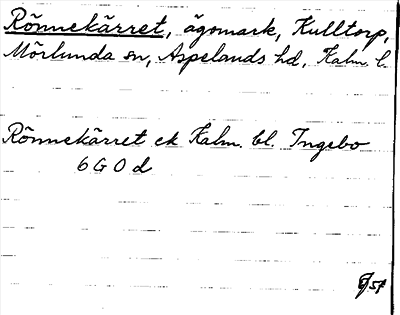 Rönnekärret, ägomark, Kulltorp,
Mörlunda sn, Aspelands hd, Kalm. l.
Rönnekärret ek Kalm. bl. Ingebo
6 G 0 d